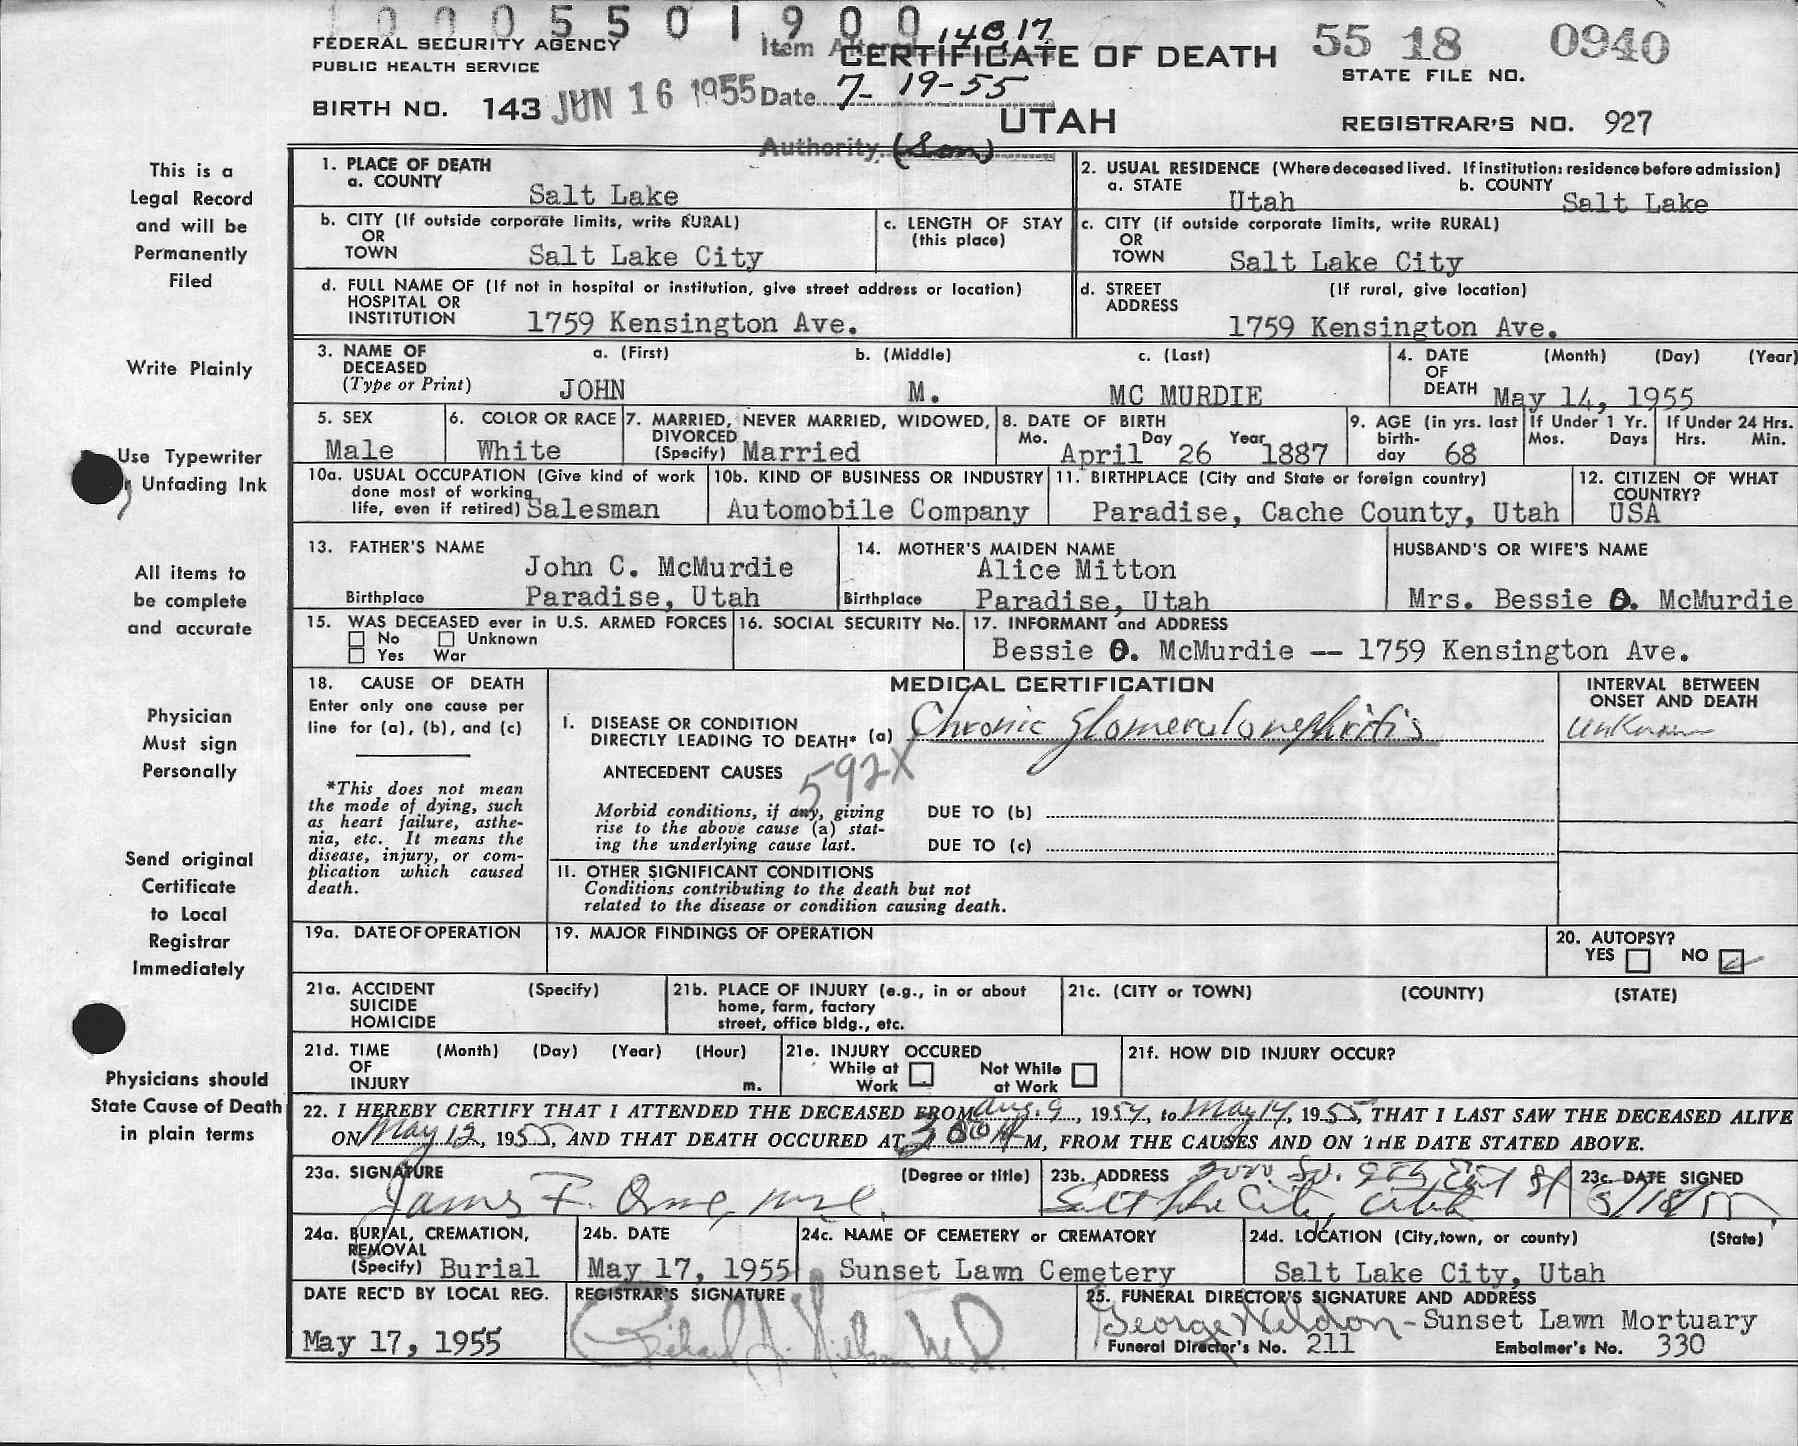 1 0 0 0 5 5 0 1 9 0 0
FEDERAL SECURITY AGENCY
PUBLIC HEALTH SERVICE
BIRTH NO. 143 JUN 16 1955
Item 14 & 17
Date 7-19-55
Authority (Son)
CERTIFICATE OF DEATH
UTAH
55 18 0940
STATE FILE NO.
REGISTRAR'S NO. 927
This is a
Legal Record
and will be
Permanently
Filed
Write Plainly
Use Typewriter
or Unfading Ink
All items to
be complete
and accurate
Physician
Must sign
Personally
Send original
Certificate
to Local
Registrar
Immediately
Physicians should
State Cause of Death
in plain terms
1. PLACE OF DEATH
a. COUNTY
Salt Lake
2. USUAL RESIDENCE (Where deceased lived. If institution: residence before admission)
a. STATE b. COUNTY
Utah Salt Lake
b. CITY (If outside corporate limits, write RURAL)
OR
TOWN Salt Lake City
c. LENGTH OF STAY
(this place)
c. CITY (if outside corporate limits, write RURAL)
OR
TOWN Salt Lake City
d. FULL NAME OF (If not in hospital or institution, give street address or location)
HOSPITAL OR
INSTITUTION 1759 Kensington Ave.
d. STREET (If rural, give location)
ADDRESS
1759 Kensington Ave.
3. NAME OF a. (First) b. (Middle) c. (Last)
DECEASED
(Type or Print) JOHN M. MC MURDIE
4. DATE (Month) (Day) (Year)
OF
DEATH May 14, 1955
5. SEX
Male
6. COLOR OR RACE
White
7. MARRIED, NEVER MARRIED, WIDOWED,
DIVORCED
(Specify) Married
8. DATE OF BIRTH
Mo. Day Year
April 26 1887
9. AGE (in yrs. last
birth-
day 68
If Under 1 Yr.
Mos. Days
If Under 24 Hrs.
Hrs. Min.
10a. USUAL OCCUPATION (Give kind of work
done most of working
life, even if retired) Salesman
10b. KIND OF BUSINESS OR INDUSTRY
Automobile Company
11. BIRTHPLACE (City and State or foreign country)
Paradise, Cache County, Utah
12. CITIZEN OF WHAT
COUNTRY?
USA
13. FATHER'S NAME
John C. McMurdie
Birthplace Paradise, Utah
14. MOTHER'S MAIDEN NAME
Alice Mitton
Birthplace Paradise, Utah
HUSBAND'S OR WIFE'S NAME
Mrs. Bessie O. McMurdie
15. WAS DECEASED ever in U.S. ARMED FORCES
No Unknown
Yes War
16. SOCIAL SECURITY No.
17. INFORMANT and ADDRESS
Bessie O. McMurdie -- 1759 Kensington Ave.
18. CAUSE OF DEATH
Enter only one cause per
line for (a), (b), and (c)
*This does not mean
the mode of dying, such
as heart failure, asthe-
nia, etc. It means the
disease, injury, or com-
plication which caused
death.
MEDICAL CERTIFICATION
I. DISEASE OR CONDITION
DIRECTLY LEADING TO DEATH* (a) Chronic glomerulonephritis
ANTECEDENT CAUSES 592X
Morbid conditions, if any, giving
rise to the above cause (a) stat-
ing the underlying cause last.
DUE TO (b)
DUE TO (c)
II. OTHER SIGNIFICANT CONDITIONS
Conditions contributing to the death but not
related to the disease or condition causing death.
INTERVAL BETWEEN
ONSET AND DEATH
Unknown
19a. DATE OF OPERATION
19. MAJOR FINDINGS OF OPERATION
20. AUTOPSY?
YES NO
21a. ACCIDENT (Specify)
SUICIDE
HOMICIDE
21b. PLACE OF INJURY (e.g., in or about
home, farm, factory
street, office bldg., etc.
21c. (CITY or TOWN) (COUNTY) (STATE)
21d. TIME (Month) (Day) (Year) (Hour)
OF
INJURY m.
21e. INJURY OCCURED
While at Not While
Work at Work
21f. HOW DID INJURY OCCUR?
22. I HEREBY CERTIFY THAT I ATTENDED THE DECEASED FROM Aug. 9, 1954, to May 14, 1955, THAT I LAST SAW THE DECEASED ALIVE
ON May 12, 1955, AND THAT DEATH OCCURED AT M, FROM THE CAUSES AND ON THE DATE STATED ABOVE.
23a. SIGNATURE (Degree or title)
James F. Orme, M.D.
23b. ADDRESS So. 9th East St
Salt Lake City, Utah
23c. DATE SIGNED
24a. BURIAL, CREMATION,
REMOVAL
(Specify) Burial
24b. DATE
May 17, 1955
24c. NAME OF CEMETERY or CREMATORY
Sunset Lawn Cemetery
24d. LOCATION (City, town, or county) (State)
Salt Lake City, Utah
DATE REC'D BY LOCAL REG.
May 17, 1955
REGISTRAR'S SIGNATURE
Richard A. M.D.
25. FUNERAL DIRECTOR'S SIGNATURE AND ADDRESS
George Weldon - Sunset Lawn Mortuary
Funeral Director's No. 211 Embalmer's No. 330